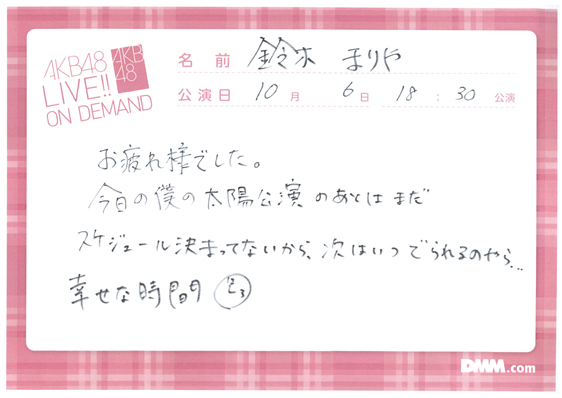 AKB48
LIVE!!
ON DEMAND
AKB
48
名前 鈴木 まりや
公演日 10月 6日 18:30 公演
お疲れ様でした。
今日の僕の太陽公演のあとはまだ
スケジュール決まってないから、次はいつでられるのやら...
幸せな時間
DMM.com